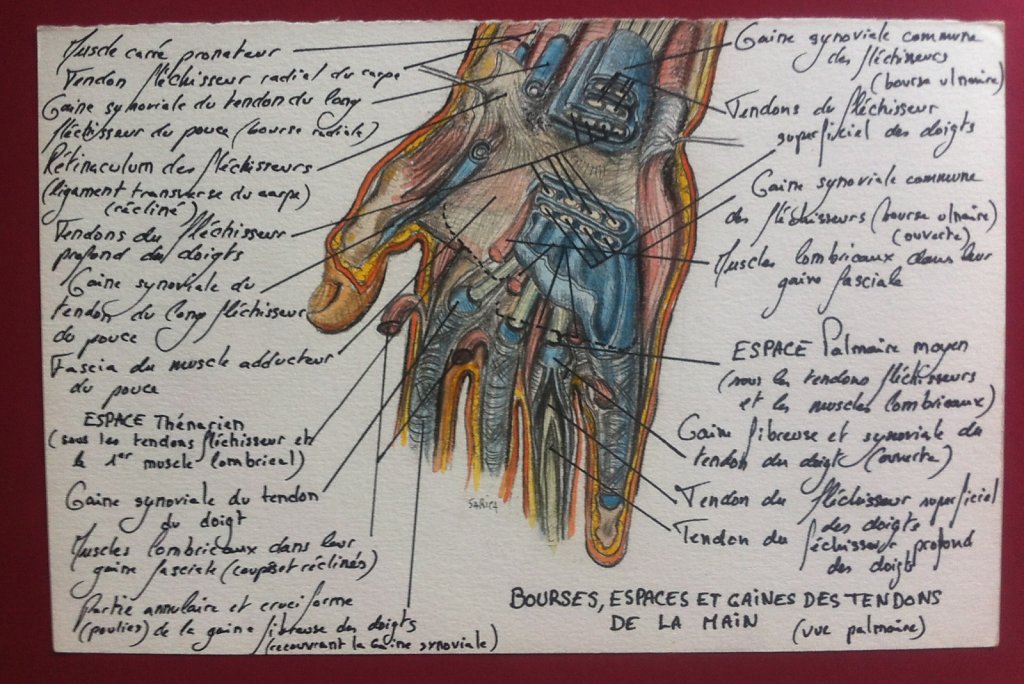 Muscle carré pronateur
Tendon fléchisseur radial du carpe
Gaine synoviale du tendon du long
fléchisseur du pouce (bourse radiale)
Rétinaculum des fléchisseurs
(ligament transverse du carpe)
(récliné)
Tendons du fléchisseur
profond des doigts
Gaine synoviale du
tendon du long fléchisseur
du pouce
Fascia du muscle adducteur
du pouce
ESPACE Thénarien
(sous les tendons fléchisseur et
le 1er muscle lombrical)
Gaine synoviale du tendon
du doigt
Muscles lombricaux dans leur
gaine fasciale (coupés et réclinés)
Partie annulaire et cruciforme
(poulies) de la gaine fibreuse des doigts
(recouvrant la Gaine synoviale)
Gaine synoviale commune
des fléchisseurs
(bourse ulnaire)
Tendons du fléchisseur
superficiel des doigts
Gaine synoviale commune
des fléchisseurs (bourse ulnaire)
(ouverte)
Muscles lombricaux dans leur
gaine fasciale
ESPACE Palmaire moyen
(sous les tendons fléchisseurs
et les muscles lombricaux)
Gaine fibreuse et synoviale du
tendon du doigt (ouverte)
Tendon du fléchisseur superficiel
des doigts
Tendon du fléchisseur profond
des doigts
SARICA
BOURSES, ESPACES ET GAINES DES TENDONS
DE LA MAIN
(vue palmaire)